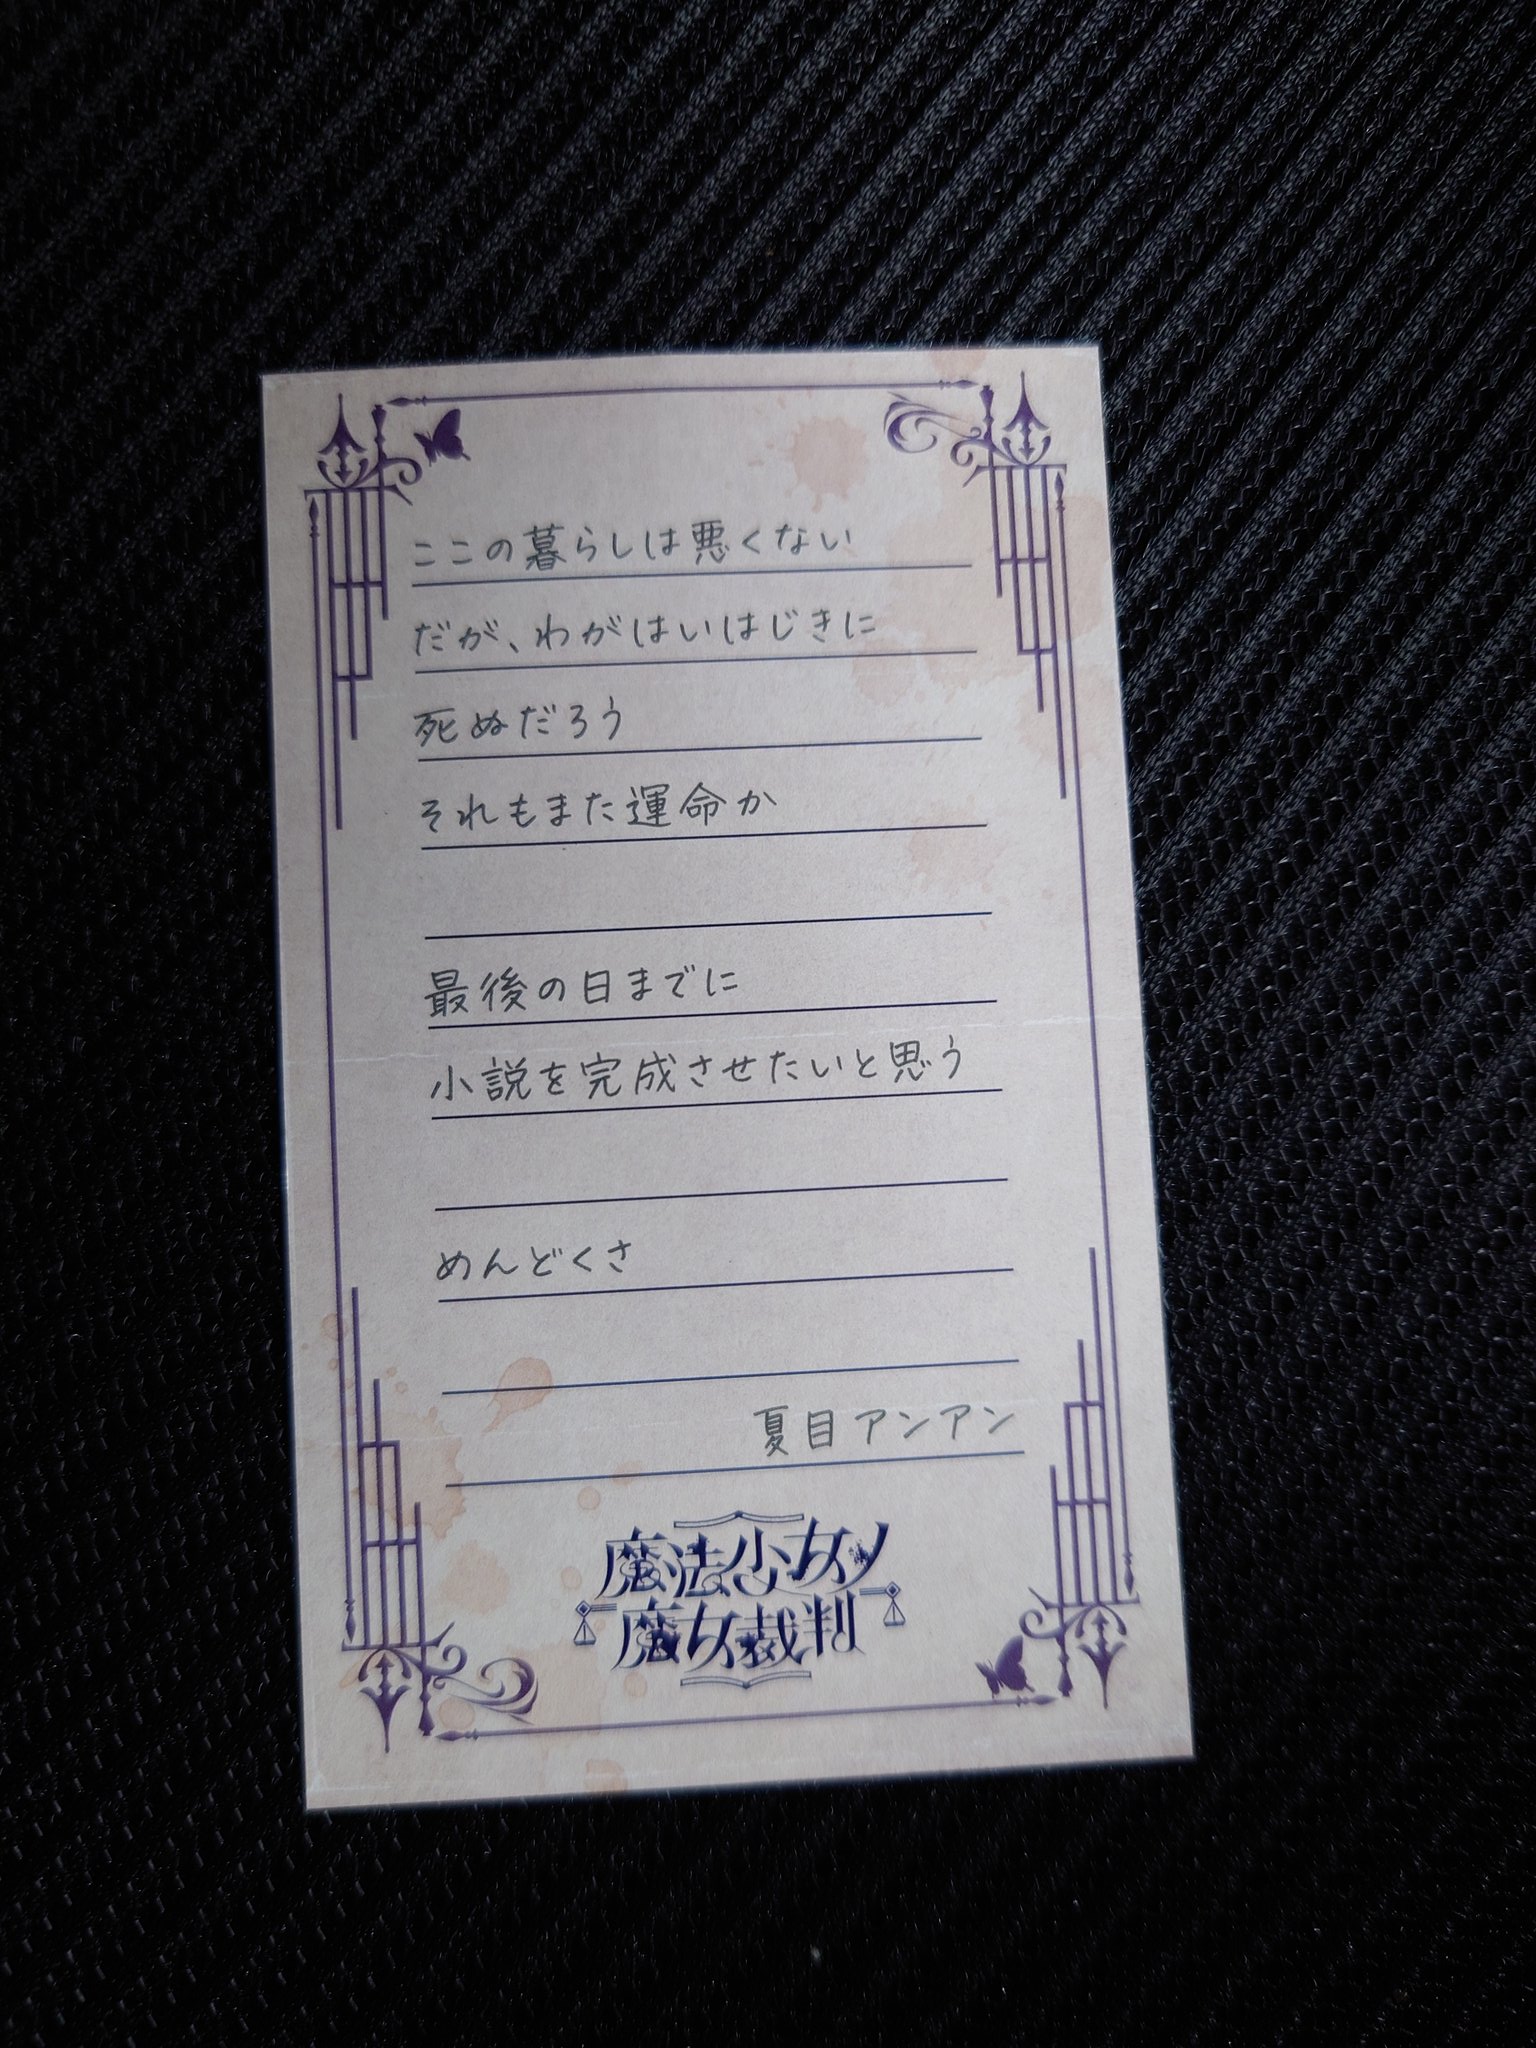 ここの暮らしは悪くない
だが、わがはいはじきに
死ぬだろう
それもまた運命か
最後の日までに
小説を完成させたいと思う
めんどくさ
夏目アンアン
魔法少女ノ
魔女裁判